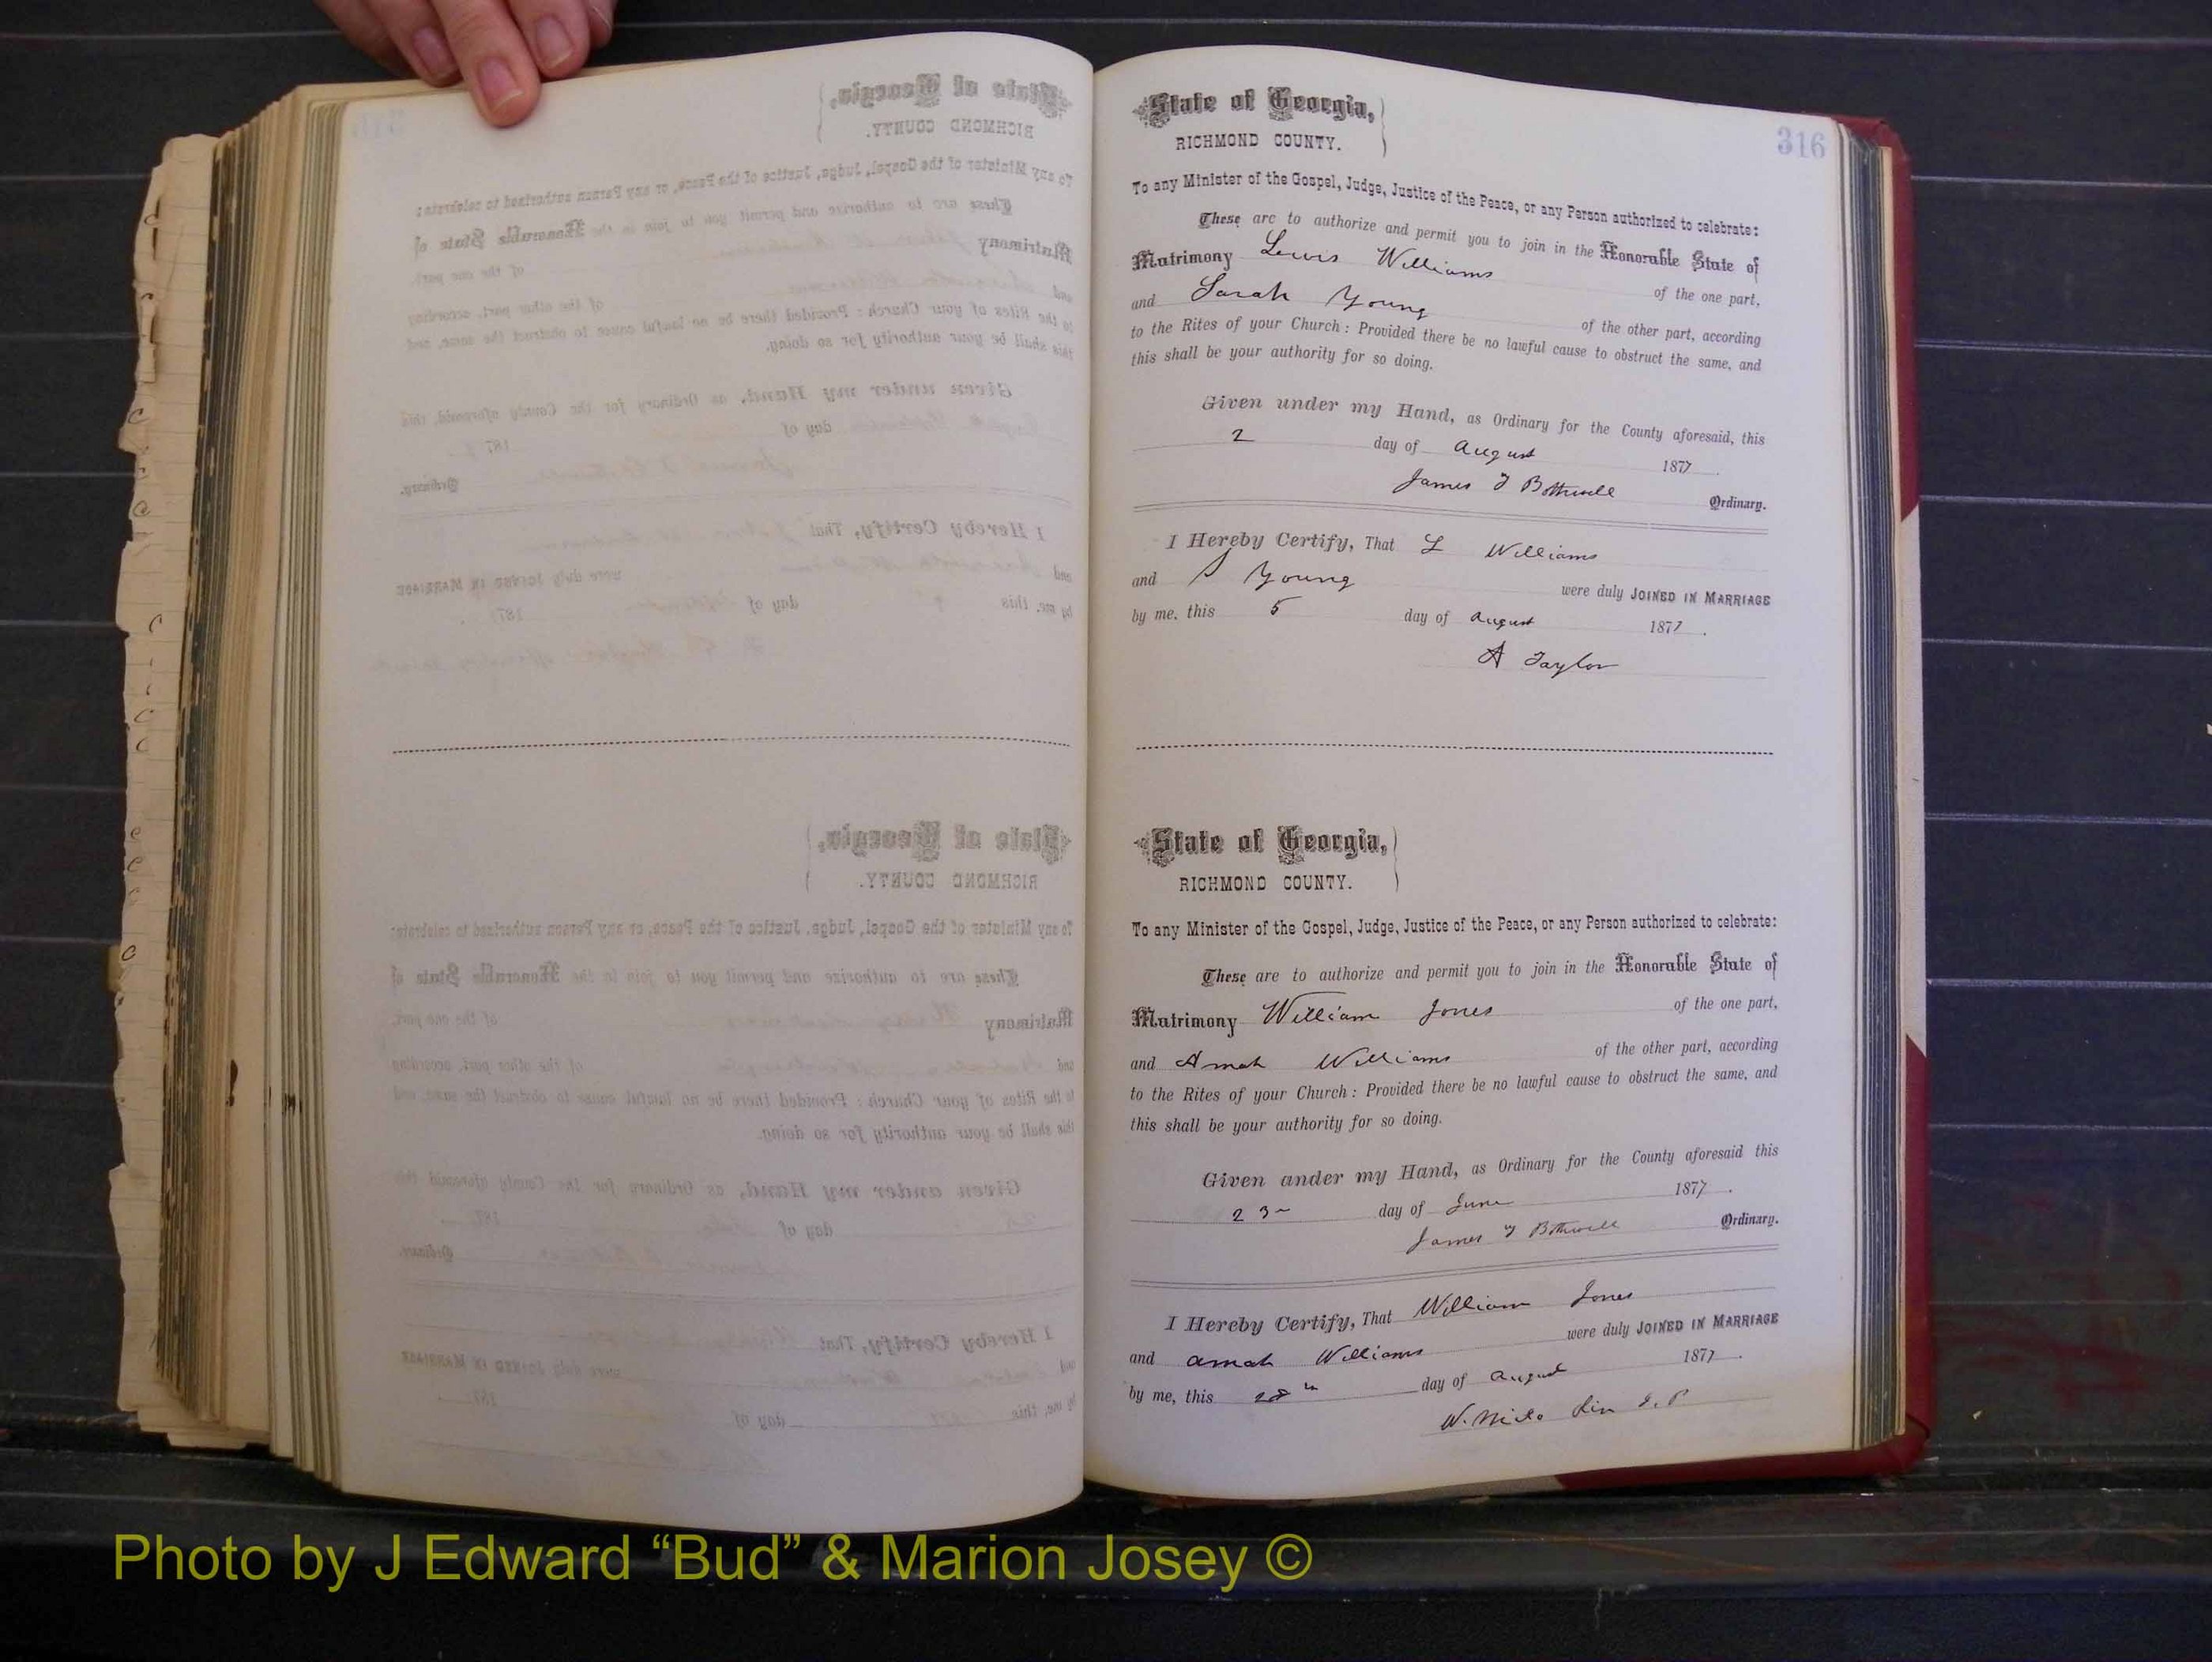 316
State of Georgia,
RICHMOND COUNTY.
To any Minister of the Gospel, Judge, Justice of the Peace, or any Person authorized to celebrate:
These are to authorize and permit you to join in the Honorable State of
Matrimony Lewis Williams of the one part,
and Sarah Young of the other part, according
to the Rites of your Church: Provided there be no lawful cause to obstruct the same, and
this shall be your authority for so doing.
Given under my Hand, as Ordinary for the County aforesaid, this
2 day of August 1877.
James T Bothwell Ordinary.
I Hereby Certify, That L Williams
and S Young were duly JOINED IN MARRIAGE
by me, this 5 day of August 1877.
A Taylor
State of Georgia,
RICHMOND COUNTY.
To any Minister of the Gospel, Judge, Justice of the Peace, or any Person authorized to celebrate:
These are to authorize and permit you to join in the Honorable State of
Matrimony William Jones of the one part,
and Amah Williams of the other part, according
to the Rites of your Church: Provided there be no lawful cause to obstruct the same, and
this shall be your authority for so doing.
Given under my Hand, as Ordinary for the County aforesaid this
23 day of June 1877.
James T Bothwell Ordinary.
I Hereby Certify, That William Jones
and Amah Williams were duly JOINED IN MARRIAGE
by me, this 28th day of August 1877.
W.
Photo by J Edward “Bud” & Marion Josey ©